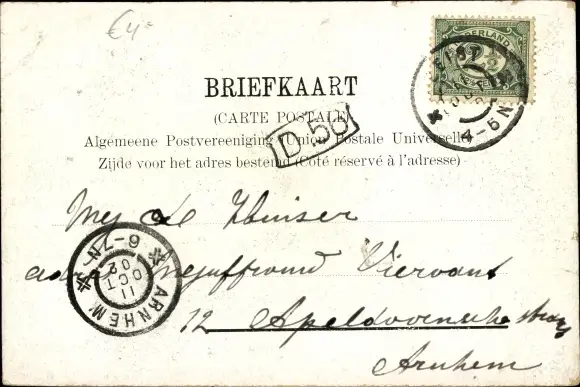 €4-
NEDERLAND
2½
BRIEFKAART
(CARTE POSTALE)
D 50
Algemeene Postvereeniging (Union Postale Universelle)
Zijde voor het adres bestemd (Coté réservé à l'adresse)
4-5N
Mej de
adres Mejuffrouw Viervant
12 Apeldoornsche straat
Arnhem
6-7N
11
OCT
02
ARNHEM